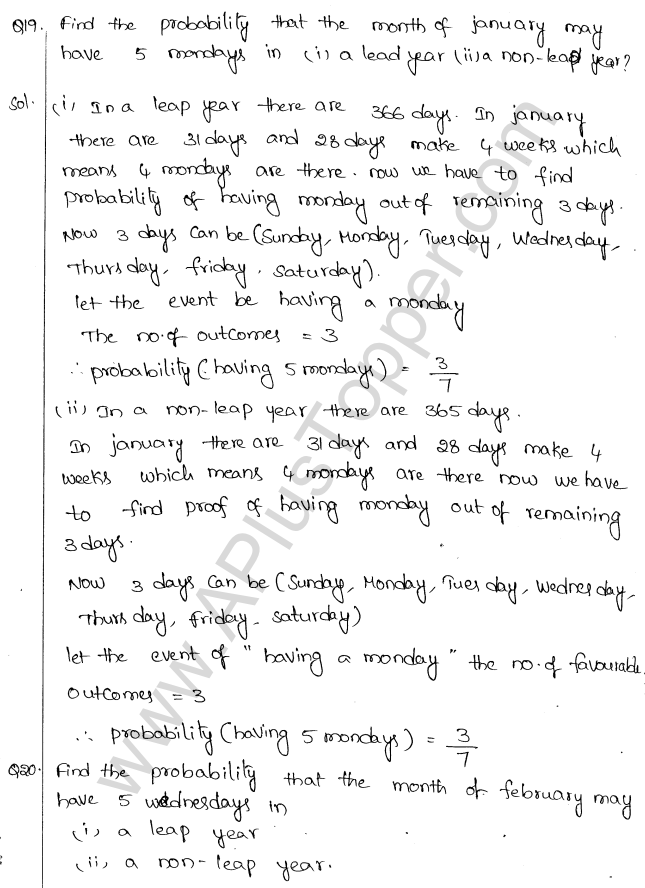 Q19. Find the probability that the month of january may
have 5 mondays in (i) a lead year (ii) a non-leap year?
Sol. (i) In a leap year there are 366 days. In january
there are 31 days and 28 days make 4 weeks which
means 4 mondays are there. now we have to find
probability of having monday out of remaining 3 days.
Now 3 days can be (Sunday, Monday, Tuesday, Wednesday,
Thursday, friday, saturday).
let the event be having a monday
The no.of outcomes = 3
∴ probability (having 5 mondays) = 3/7
(ii) In a non-leap year there are 365 days.
In january there are 31 days and 28 days make 4
weeks which means 4 mondays are there now we have
to find proof of having monday out of remaining
3 days.
Now 3 days can be (Sunday, Monday, Tuesday, Wednesday,
Thursday, friday, saturday)
let the event of "having a monday" the no.of favourable
outcomes = 3
∴ probability (having 5 mondays) = 3/7
Q20. Find the probability that the month of february may
have 5 wednesdays in
(i) a leap year
(ii) a non-leap year.
www.APlusTopper.com